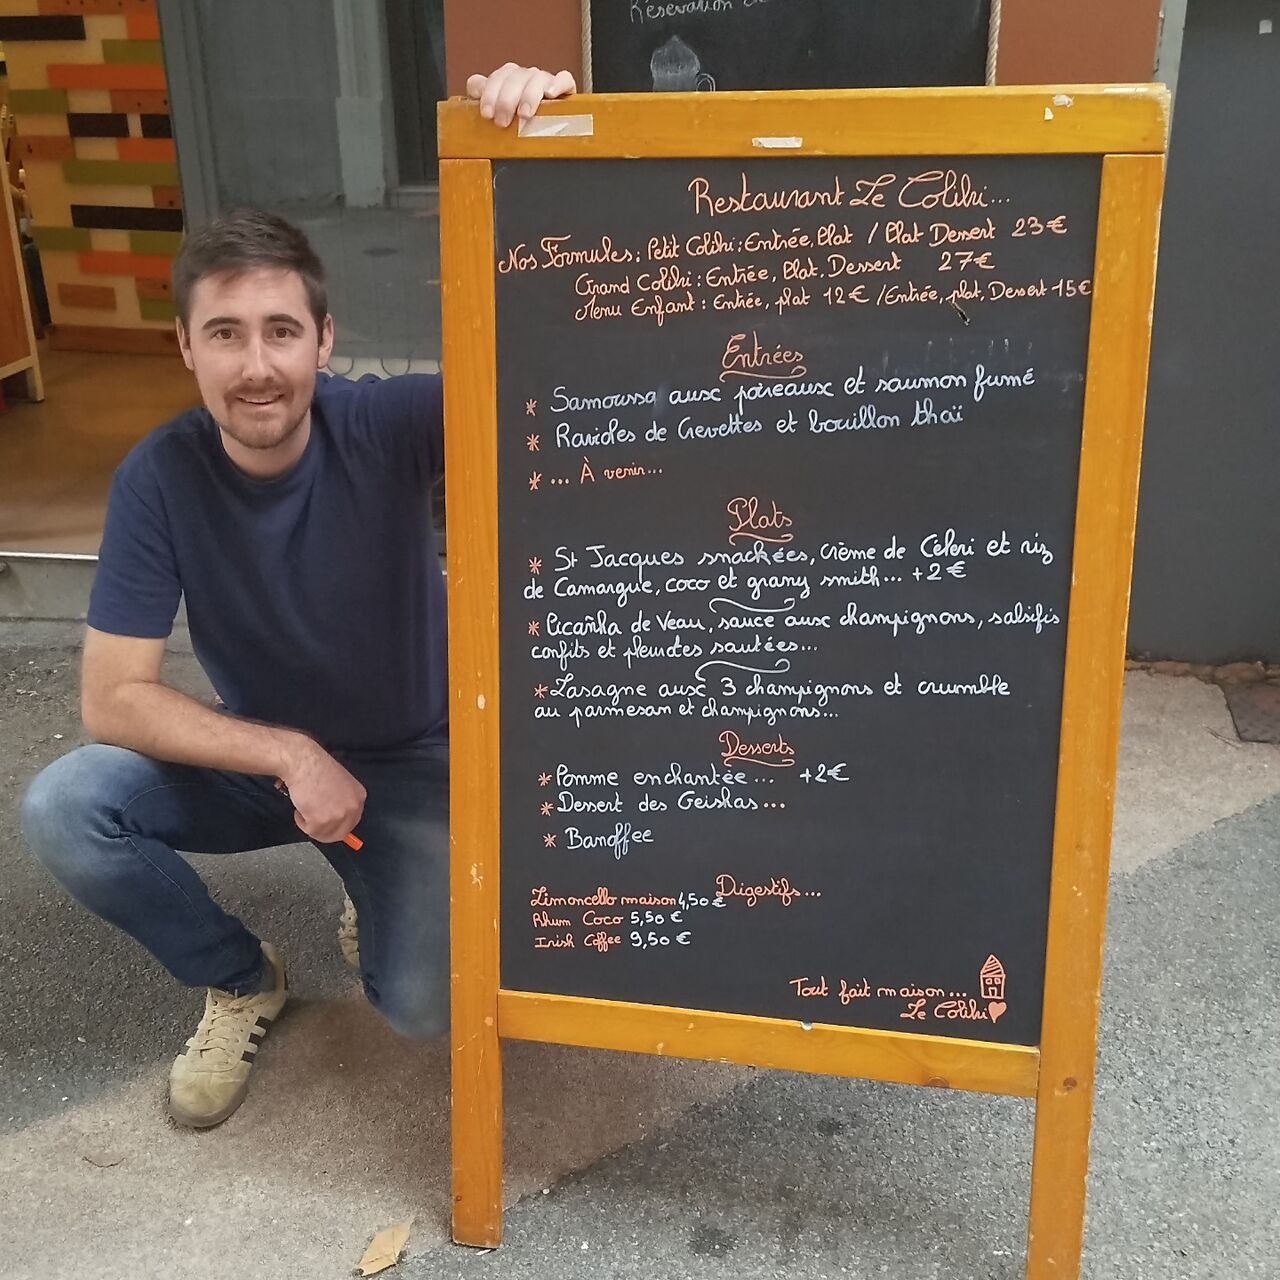 Réservation
Restaurant Le Colibri...
Nos Formules : Petit Colibri : Entrée, Plat / Plat Dessert 23€
Grand Colibri : Entrée, Plat, Dessert 27€
Menu Enfant : Entrée, plat 12€ / Entrée, plat, Dessert 15€
Entrées
* Samoussa aux poireaux et saumon fumé
* Ravioles de Crevettes et bouillon thaï
* ... À venir...
Plats
* St Jacques snackées, crème de Céleri et riz
de Camargue, coco et grany smith... +2€
* Picañha de Veau, sauce aux champignons, salsifis
confits et pleurotes sautées...
* Lasagne aux 3 champignons et crumble
au parmesan et champignons...
Desserts
* Pomme enchantée... +2€
* Dessert des Geishas...
* Banoffee
Digestifs...
Limoncello maison 4,50€
Rhum Coco 5,50€
Irish Coffee 9,50€
Tout fait maison...
Le Colibri